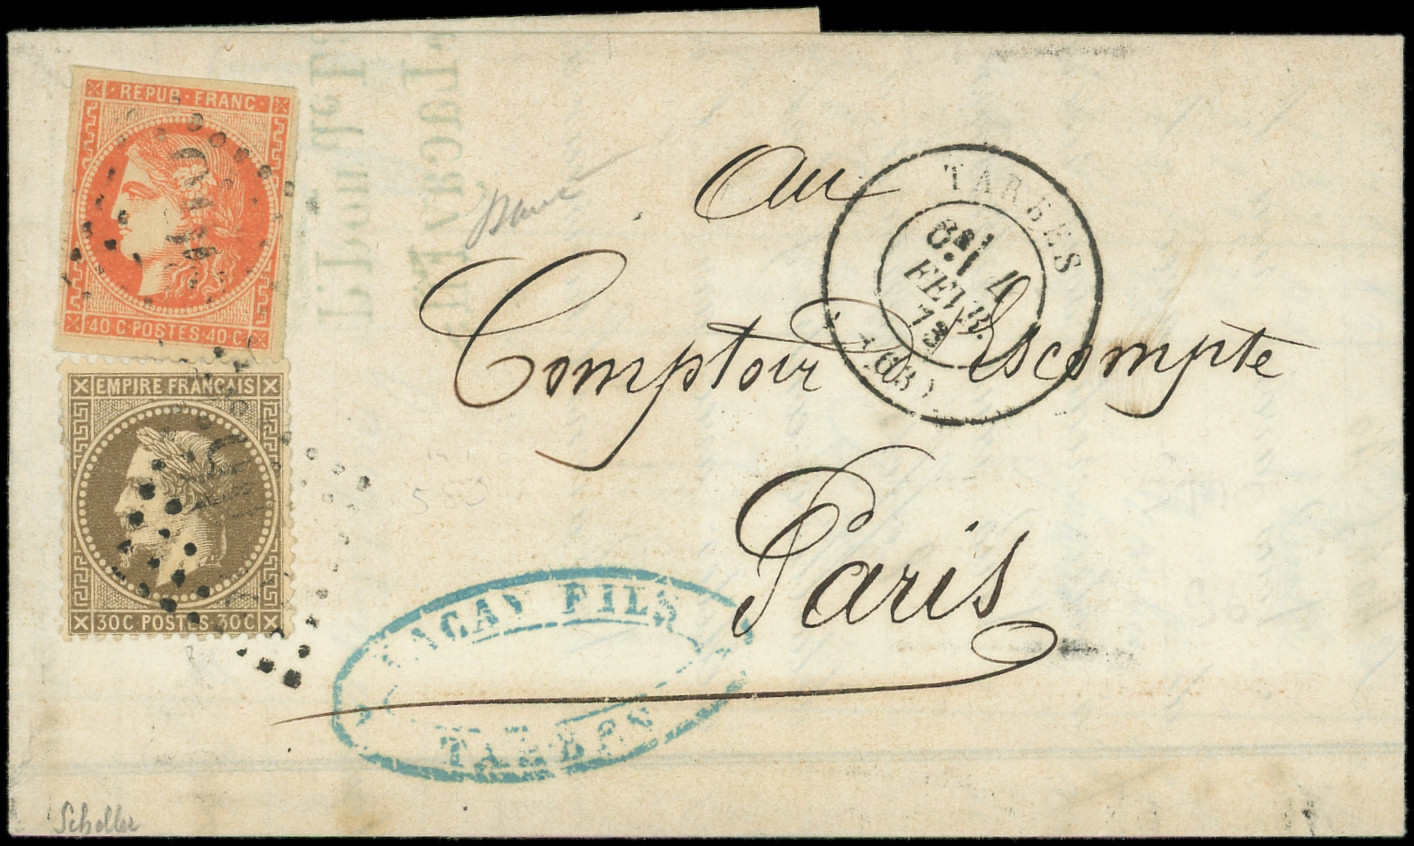 REPUB · FRANC ·
40 C · POSTES · 40 C
EMPIRE FRANÇAIS
30 C POSTES 30 C
au
Comptoir Escompte
Paris
TARBES
4
FEVR.
73
FILS
TARBES
Scheller